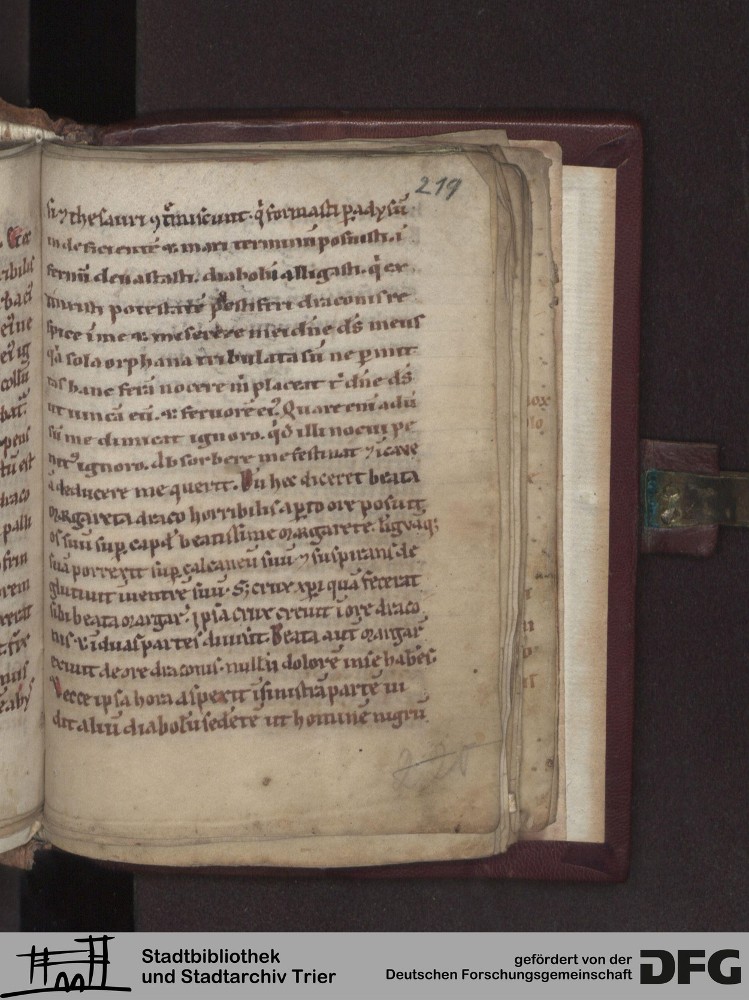 219
si ⁊ thesauri ꝯtmiscunt. q̄ formasti ꝑadysū
indeficientē & mari terminū posuisti. i
fernū deuastasti. diabolū alligasti. q̄ ex
tinxisti potestatē pestiferi draconis re
spice ī me & miserere mei dn̄e ds̄ meus
q̄a sola orphana tribulata sū ne ꝑmit
tas hanc ferā nocere m̄ placeat t̄ dn̄e ds̄
ut uincā eū. & feruorē ei᷒. Quare enī adū
me dimicat ignoro. qd̄ illi nocui pe
nit᷒ ignoro. Absorbere me festinat ⁊ ī caue
ā deducere me querit. Dū hec diceret beata
margareta draco horribilis aꝑto ore posuit
os suū suꝑ capd̄ beatissime margarete. liguāq;
suā porrexit suꝑ calcaneū suū ⁊ suspirans de
glutiuit in uentrē suū. S; crux xp̄i quā fecerat
sibi beata margar̄. ipsa crux creuit ī ore draco
nis. & ī duas partes diuisit. Beata aut̄ margar̄
exiuit de ore draconis. nullū dolorē in se habēs.
ecce ipsa hora aspexit ī sinistrā partē ui
dit aliū diabolū sedētē ut hominē nigrū
220
Stadtbibliothek
und Stadtarchiv Trier
gefördert von der
Deutschen Forschungsgemeinschaft
DFG